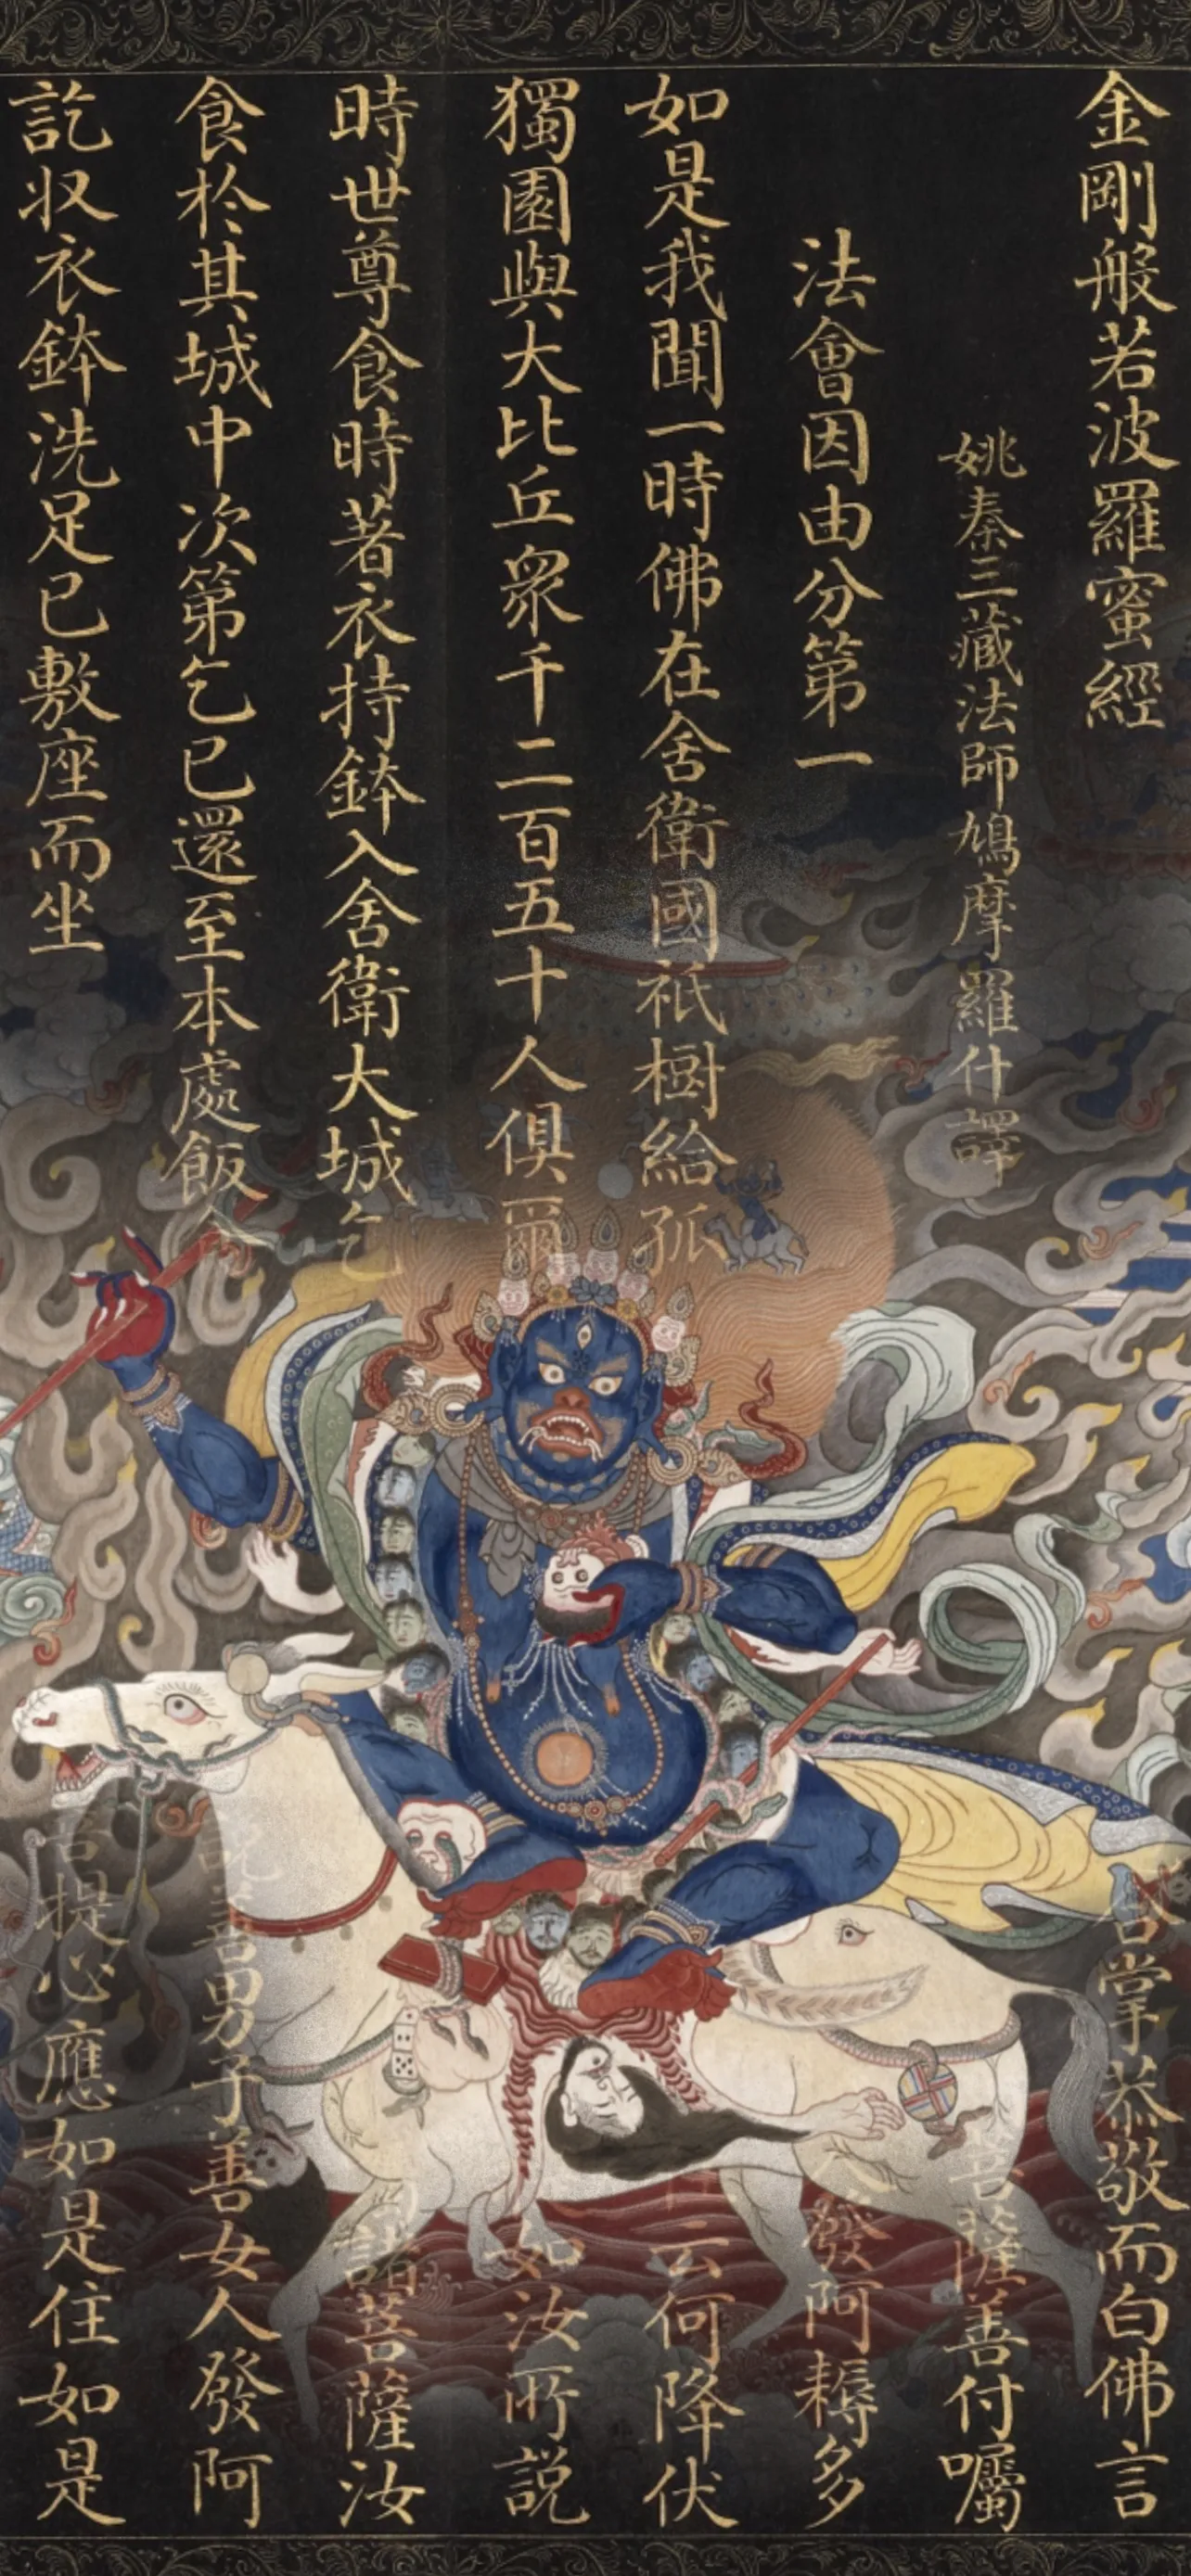 金剛般若波羅蜜經
姚秦三藏法師鳩摩羅什譯
法會因由分第一
如是我聞一時佛在舍衛國祇樹給孤
獨園與大比丘衆千二百五十人俱爾
時世尊食時著衣持鉢入舍衛大城乞
食於其城中次第乞已還至本處飯
訖収衣鉢洗足已敷座而坐
合掌恭敬而白佛言
菩薩善付囑
發阿耨多
云何降伏
如汝所説
諸菩薩汝
善男子善女人發阿
提心應如是住如是